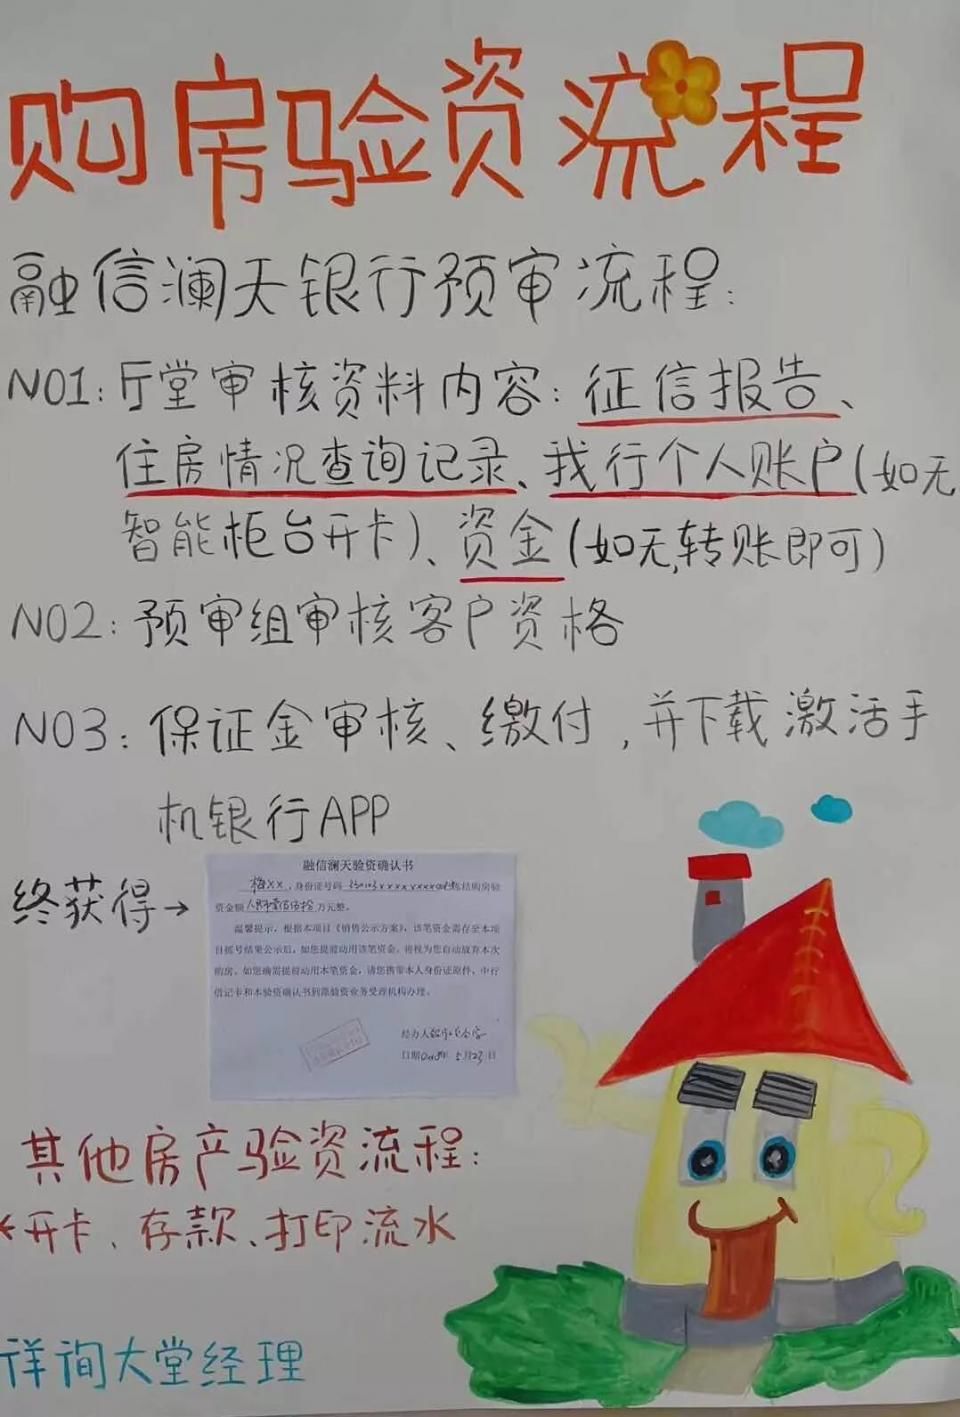 购房验资流程
融信澜天银行预审流程:
NO1:厅堂审核资料内容:征信报告、
住房情况查询记录、我行个人账户(如无
智能柜台开卡)、资金(如无,转账即可)
NO2:预审组审核客户资格
NO3:保证金审核、缴付,并下载激活手
机银行APP
终获得→
融信澜天验资确认书
,身份证号码
结购房验
资金额 万元整。
温馨提示,根据本项目《销售公示方案》,该笔资金需存至本项
目摇号结果公示后,如您提前动用该笔资金,将视为您自动放弃本次
购房。如您确需提前动用本笔资金,请您携带本人身份证原件、中行
借记卡和本验资确认书到原验资业务受理机构办理。
经办人
日期 2018年 5月23日
其他房产验资流程:
开卡、存款、打印流水
详询大堂经理